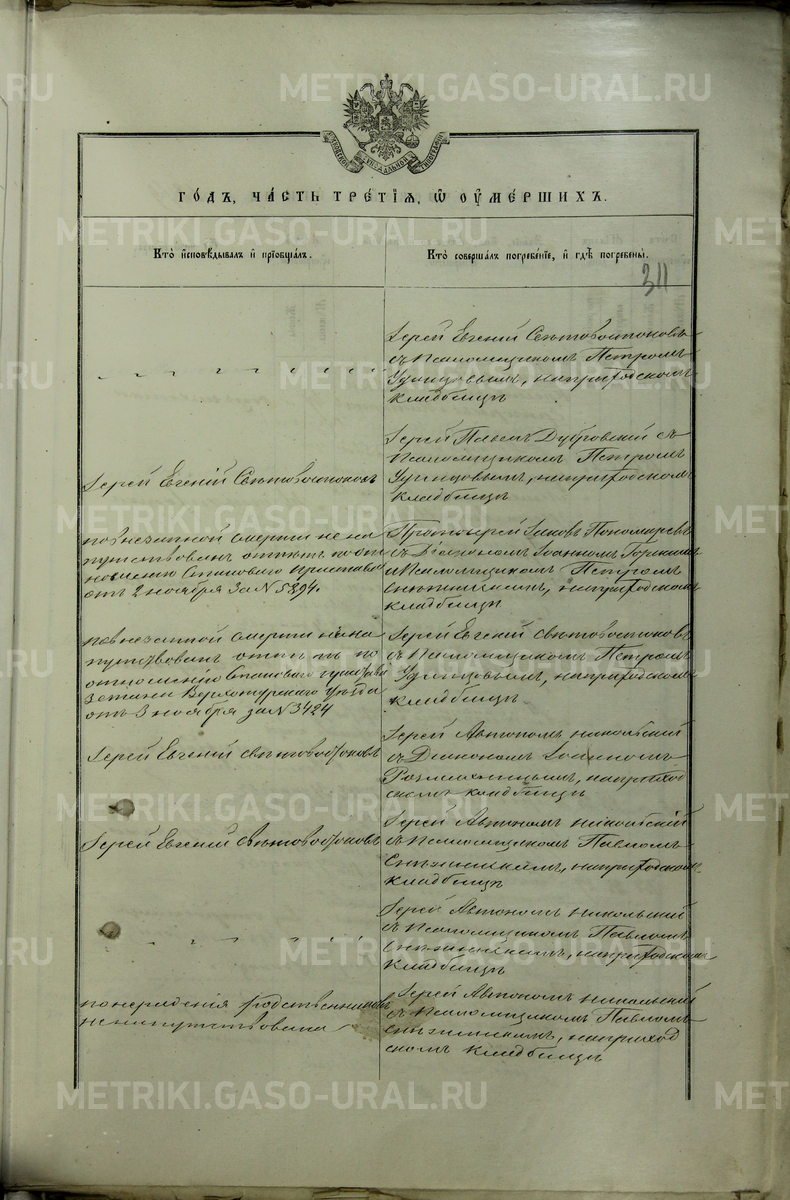 METRIKI.GASO-URAL.RU
МОСКОВСКОЙ СѴНОДАЛЬНОЙ ТИПОГРАФІИ
ГО́ДЪ, ЧА́СТЬ ТРЕ́ТІѦ, Ѡ҆ ОУ҆МЕ́РШИХЪ.
Кто̀ и҆сповѣ́дывалъ и҆ прїобща́лъ.
Кто̀ соверша́лъ погребе́нїе, и҆ гдѣ̀ погребены̀.
311
Іерей Евгеній Свѣтовостоковъ
съ Псаломщикомъ Петромъ
Удинцовымъ, на приходскомъ
кладбищѣ
Іерей Евгеній Свѣтовостоковъ
Іерей Павелъ Дубровскій съ
Псаломщикомъ Петромъ
Удинцовымъ, на приходскомъ
кладбищѣ
по внезапной смерти не на
путствованъ отпѣтъ по от
ношенію Становаго Пристава
отъ 2 ноября за № 5294.
Протоіерей Іаковъ Пономаревъ
съ Діакономъ Іоанномъ
и Псаломщикомъ Петромъ
на приходскомъ
кладбищѣ
по внезапной смерти не на
путствованъ отпѣтъ по
отношенію Становаго Пристава
3 стана Верхотурскаго Уѣзда
отъ 3 ноября за № 3424
Іерей Евгеній Свѣтовостоковъ
съ Псаломщикомъ Петромъ
Удинцовымъ, на приходскомъ
кладбищѣ
Іерей Евгеній Свѣтовостоковъ
Іерей Автономъ Никольскій
съ Діакономъ Іоанномъ
на приход
скомъ кладбищѣ
Іерей Евгеній Свѣтовостоковъ
Іерей Автономъ Никольскій
съ Псаломщикомъ Павломъ
на приходскомъ
кладбищѣ
Іерей Автономъ Никольскій
съ Псаломщикомъ Павломъ
на приходскомъ
кладбищѣ
по нерадѣнія родственниковъ
не напутствована
Іерей Автономъ Никольскій
съ Псаломщикомъ Павломъ
на приход
скомъ кладбищѣ